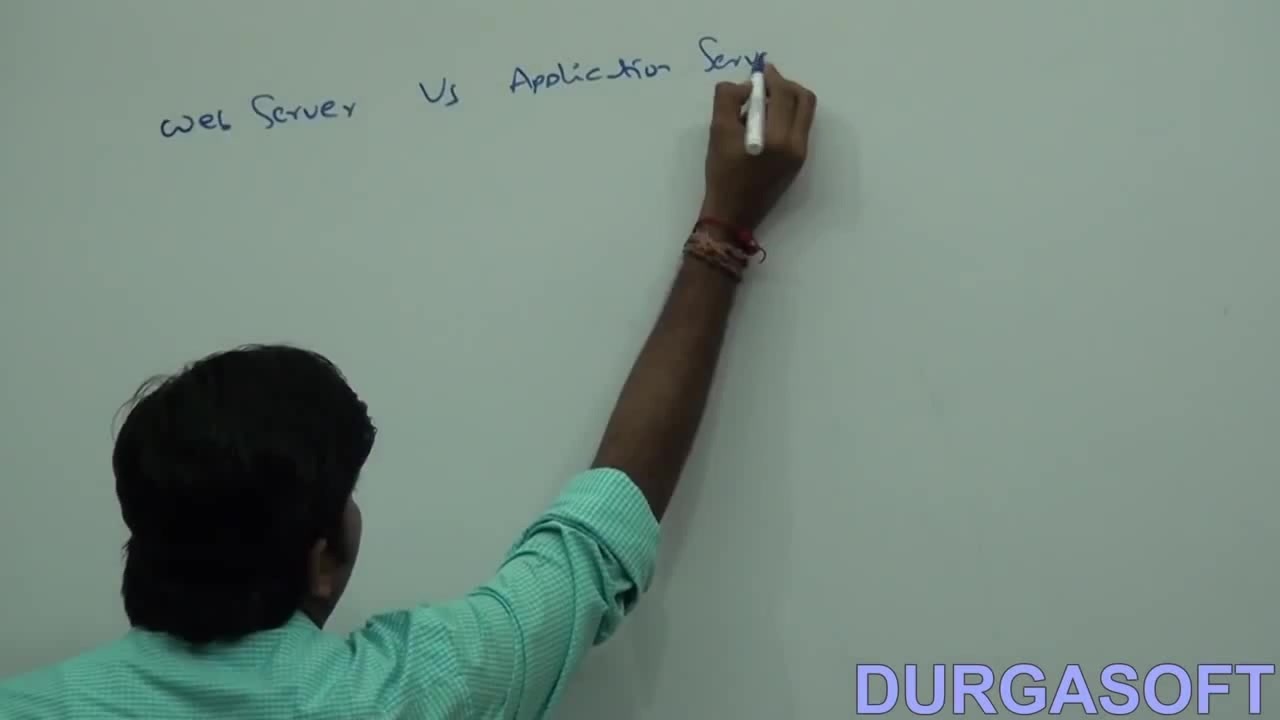 Web Server Vs Application Serv
DURGASOFT